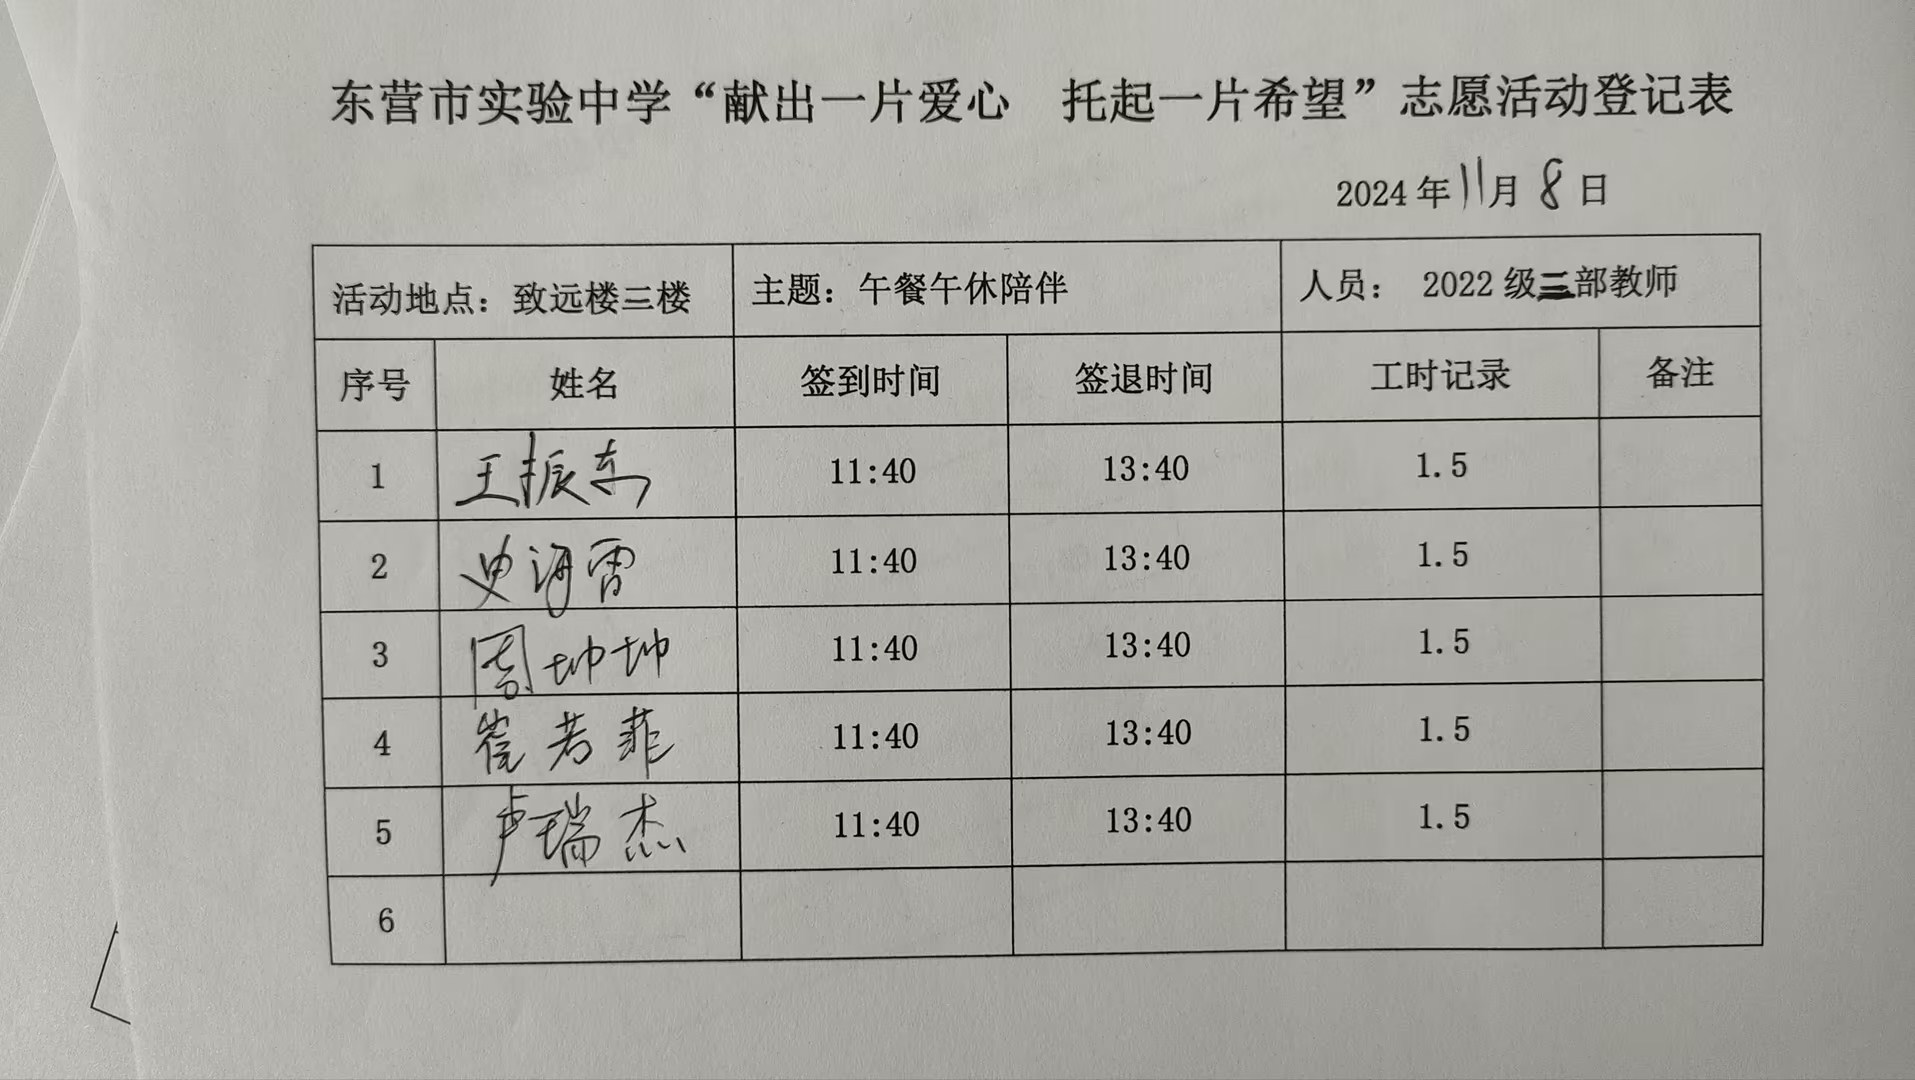 东营市实验中学“献出一片爱心 托起一片希望”志愿活动登记表
2024年11月8日
活动地点：致远楼三楼 主题：午餐午休陪伴 人员： 2022级三部教师
序号 姓名 签到时间 签退时间 工时记录 备注
1 王振东 11:40 13:40 1.5
2 史海雷 11:40 13:40 1.5
3 周坤坤 11:40 13:40 1.5
4 崔若菲 11:40 13:40 1.5
5 卢瑞杰 11:40 13:40 1.5
6